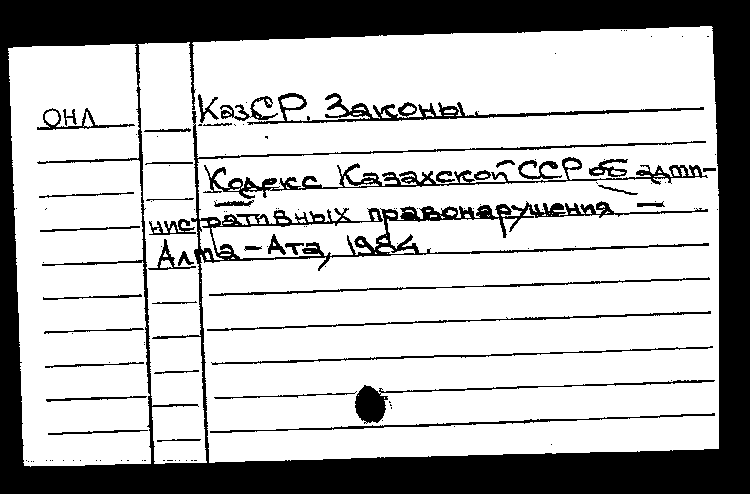 ОНЛ КазСР. Законы.
Кодекс Казахской ССР об адми-
нистративных правонарушения —
Алма-Ата, 1984.